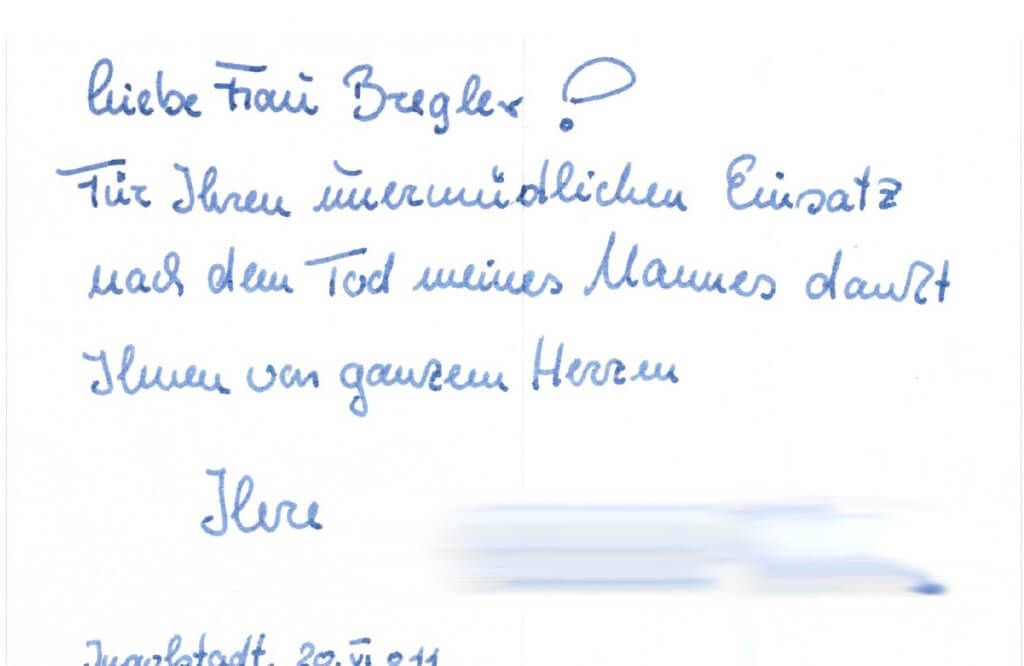 Liebe Frau Bregler!
Für Ihren unermüdlichen Einsatz
nach dem Tod meines Mannes dankt
Ihnen von ganzem Herzen
Ihre
Ingolstadt, 20. VI. 011